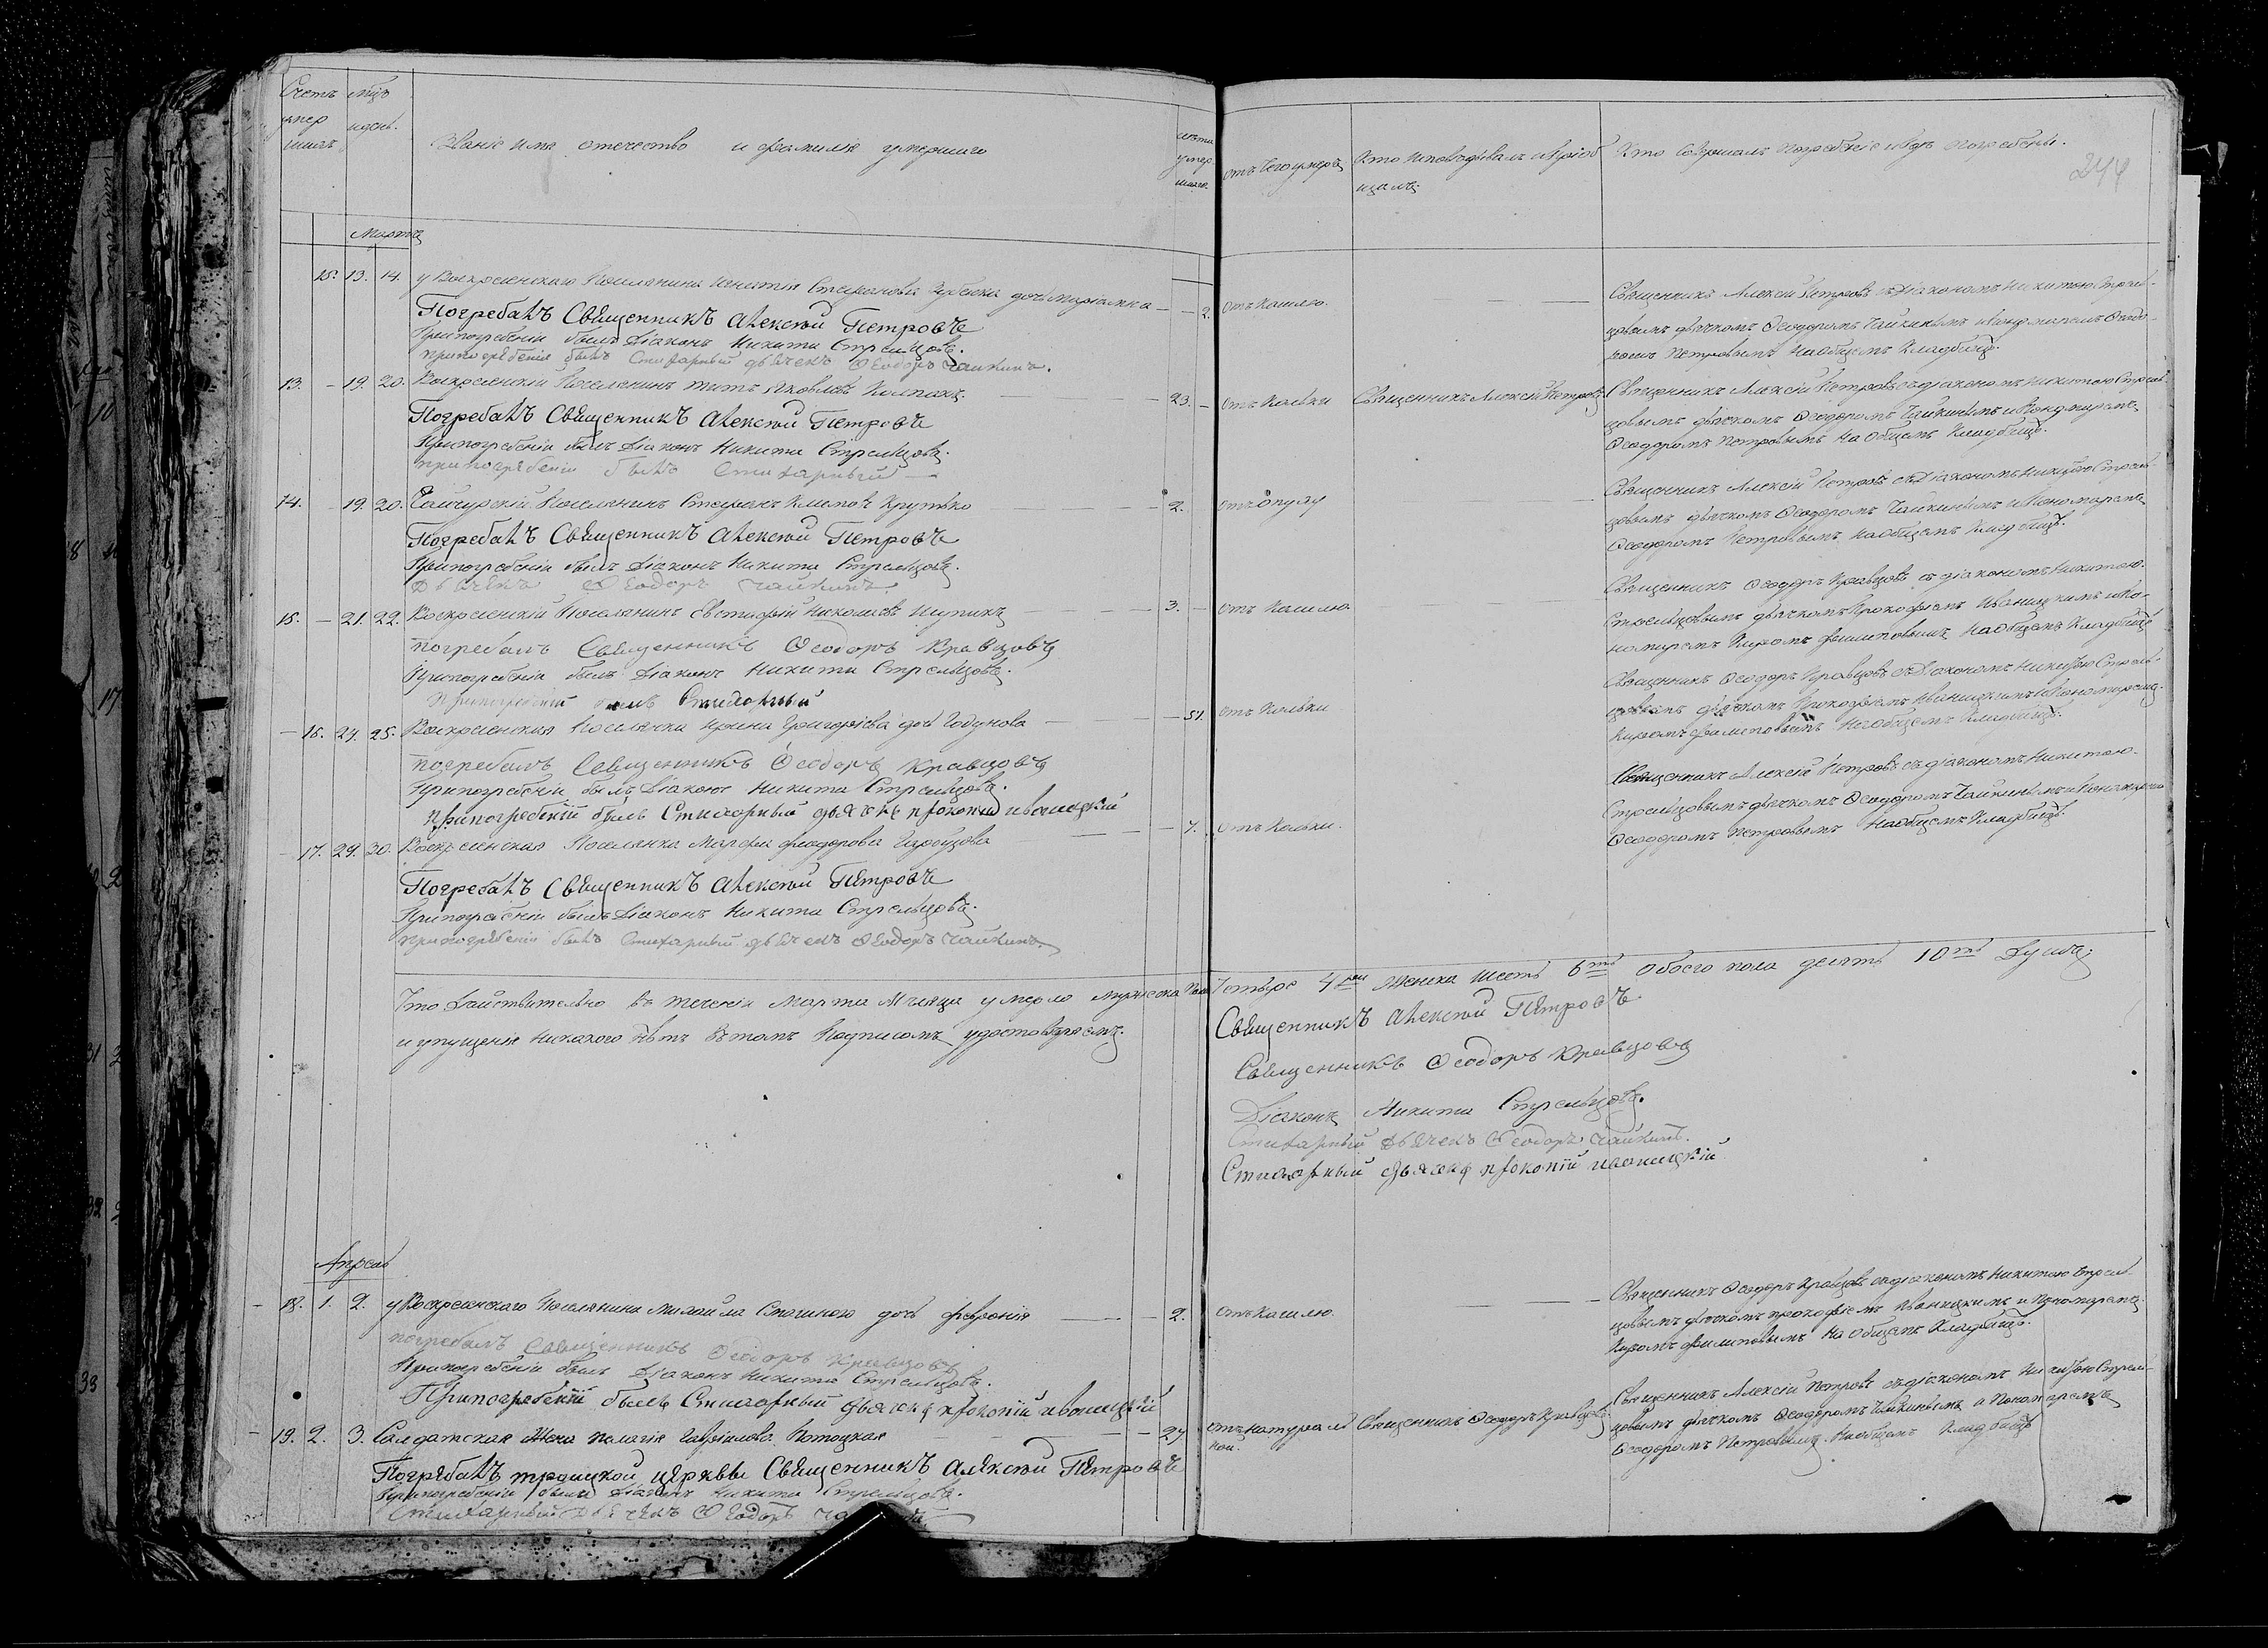 Счетъ мцъ
умер и день.
шихъ
Званіе имя отечество и фамилія умершаго
лета
умер
шаго.
отъ чего умеръ
Кто исповѣдывалъ и пріоб
щалъ
Кто совершалъ погребеніе и гдѣ погребены.
244
Марта
15. 13. 14. у Воскресенскаго Поселянина Игнатія Стефанова дочь Маріамна 2. отъ кашлю.
Погребалъ Священникъ Алексѣй Петровъ
При погребеніи былъ Діаконъ Никита Стрельцовъ.
при погребеніи былъ Стихарный дьячекъ Ѳеодоръ Чайкинъ.
Священникъ Алексій Петровъ съ діакономъ Никитою Стрель-
цовымъ дьячкомъ Ѳеодоромъ Чайкинымъ и Пономаремъ Ѳеодо-
ромъ Петровымъ на общемъ кладбищѣ.
13. - 19. 20. Воскресенскій Поселянинъ Титъ Яковлевъ Колпакъ 23. отъ Кольки Священникъ Алексій Петровъ
Погребалъ Священникъ Алексѣй Петровъ
При погребеніи былъ Діаконъ Никита Стрельцовъ.
при погребеніи былъ Стихарный
Священникъ Алексій Петровъ съ діакономъ Никитою Стрель-
цовымъ дьячкомъ Ѳеодоромъ Чайкинымъ и Пономаремъ
Ѳеодоромъ Петровымъ на общемъ кладбищѣ.
14. - 19. 20. Поселянинъ Стефанъ Климовъ Крутько 2. отъ опуху
Погребалъ Священникъ Алексѣй Петровъ
При погребеніи былъ Діаконъ Никита Стрельцовъ.
Дьячекъ Ѳеодоръ Чайкинъ.
Священникъ Алексій Петровъ съ Діакономъ Никитою Стрель-
цовымъ дьячкомъ Ѳеодоромъ Чайкинымъ и Пономаремъ
Ѳеодоромъ Петровымъ на общемъ кладбищѣ.
15. - 21. 22. Воскресенскій Поселянинъ Евстафій Николаевъ 3. отъ кашлю.
погребалъ Священникъ Ѳеодоръ Кравцовъ
При погребеніи былъ Діаконъ Никита Стрельцовъ.
При погребеній былъ Стихарный
Священникъ Ѳеодоръ Кравцовъ съ діакономъ Никитою
Стрельцовымъ дьячкомъ Прокофіемъ Иваницкимъ и По-
номаремъ Киромъ Филиповымъ на общемъ кладбищѣ
- 16. 24. 25. Воскресенская Поселянка Ирина Григоріева дочь Годунова 51. отъ Кольки
погребалъ Священникъ Ѳеодоръ Кравцовъ
При погребеніи былъ Діаконъ Никита Стрельцовъ.
При погребеній былъ Стихарный дьячекъ прокопій иваницкій
Священникъ Ѳеодоръ Кравцовъ съ Діакономъ Никитою Стрель-
цовымъ дьячкомъ Прокофіемъ Иваницкимъ и Пономаремъ
Киромъ Филиповымъ на общемъ кладбищѣ.
- 17. 29. 30. Воскресенская Поселянка Марфа Феодорова 7. отъ Кольки.
Погребалъ Священникъ Алексѣй Петровъ
При погребеніи былъ Діаконъ Никита Стрельцовъ.
при погребеніи былъ Стихарный дьячекъ Ѳеодоръ Чайкинъ
Священникъ Алексій Петровъ съ діакономъ Никитою
Стрельцовымъ дьячкомъ Ѳеодоромъ Чайкинымъ и Пономаремъ
Ѳеодоромъ Петровымъ на общемъ кладбищѣ.
Что дѣйствительно въ теченіи Марта Мѣсяца умерло мужеска Пола Четыре 4ри женска шесть 6ть обоего пола десять 10ть Душъ,
и упущенія никакого нѣтъ въ томъ подписомъ удостовѣряемъ.
Священникъ Алексѣй Петровъ
Священникъ Ѳеодоръ Кравцовъ
Діаконъ Никита Стрельцовъ.
Стихарный дьячекъ Ѳеодоръ Чайкинъ.
Стихарный дьячекъ прокопій иваницкій
Апрель
- 18. 1. 2. у Воскресенскаго Поселянина Михайла дочь Февронія 2. отъ кашлю.
погребалъ Священникъ Ѳеодоръ Кравцовъ
При погребеніи былъ Діаконъ Никита Стрельцовъ.
При погребеній былъ Стихарный дьячекъ прокопій иваницкій
Священникъ Ѳеодоръ Кравцовъ съ діакономъ Никитою Стрель-
цовымъ дьячкомъ Прокофіемъ Иваницкимъ и Пономаремъ
Киромъ Филиповымъ на общемъ кладбищѣ.
- 19. 2. 3. Салдатская Жена Пелагія Гавріилова Потоцкая 27 отъ натураль
ной. Священникъ Ѳеодоръ Кравцовъ
Погребалъ троицкой церквы Священникъ Алексѣй Петровъ
При погребеніи былъ Діаконъ Никита Стрельцовъ.
Стихарный дьячекъ Ѳеодоръ
Священникъ Алексій Петровъ съ діакономъ Никитою Стрель-
цовымъ дьячкомъ Ѳеодоромъ Чайкинымъ и Пономаремъ
Ѳеодоромъ Петровымъ на общемъ кладбищѣ